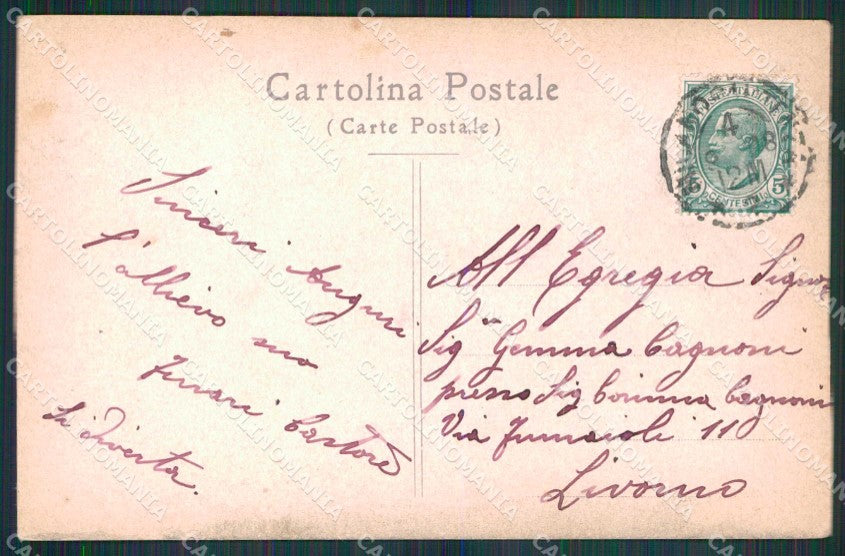 Cartolina Postale
(Carte Postale)
Sinceri Auguri
l'allievo suo
Funari Castore
Si diverta.
All Egregia Signora
Sig na Gemma Cagnoni
presso Sig Corinna Cagnoni
Via Fumaioli 110
Livorno
4
28
12 M
5
CENTESIMI
CARTOLINOMANIA